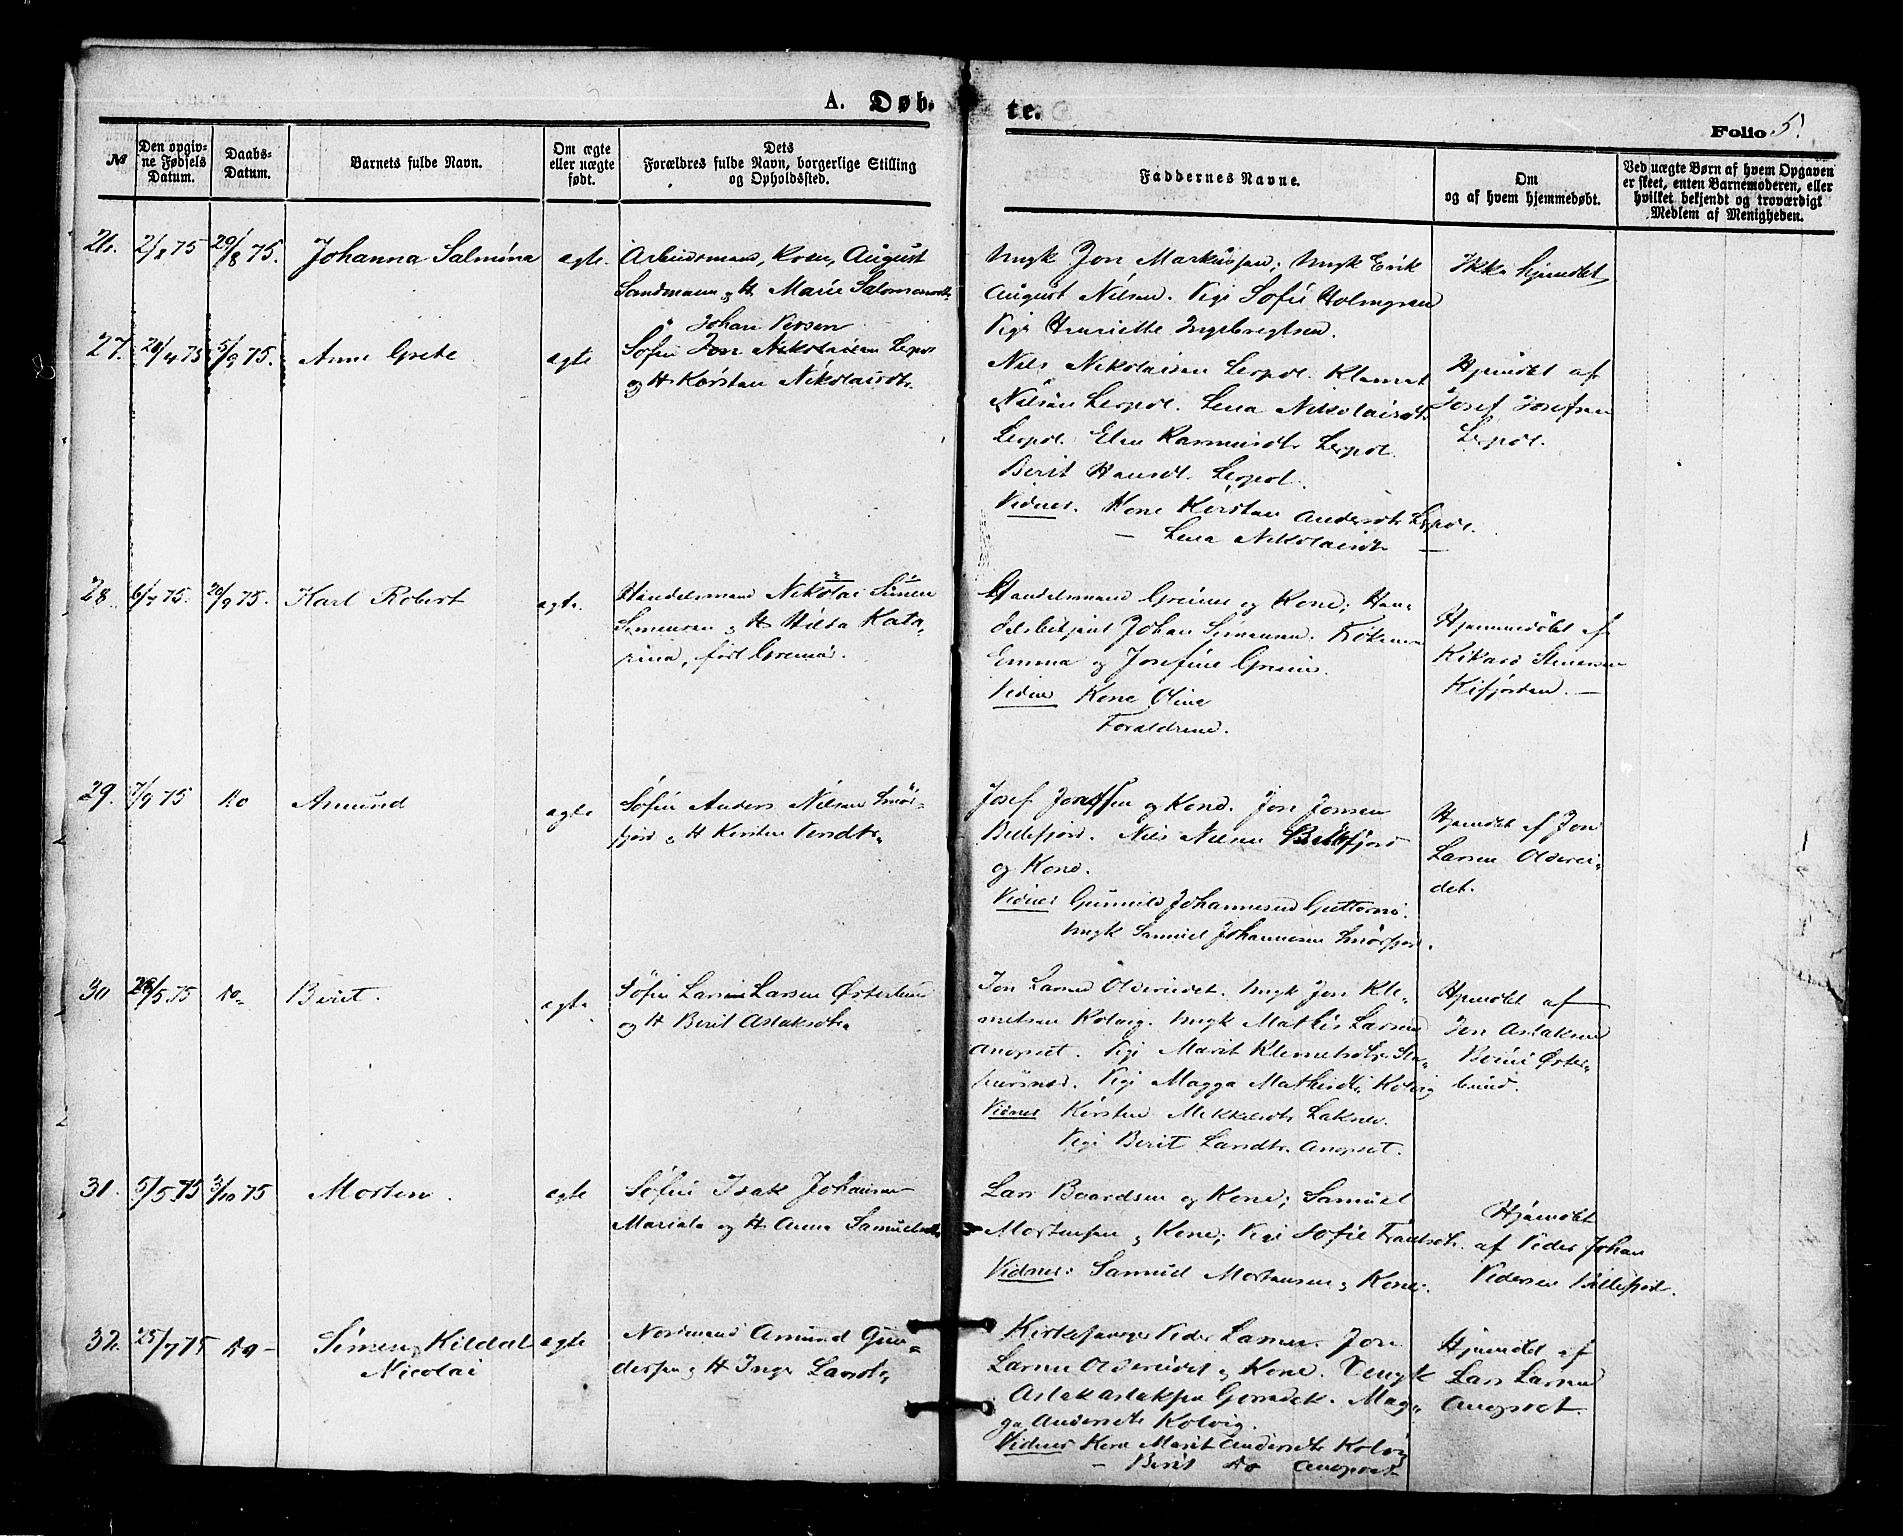 A. Døb-
te.
Folio 5.
№
Den opgiv-
ne Fødsels
Datum.
Daabs-
Datum.
Barnets fulde Navn.
Om ægte
eller uægte
født.
Dets
Forældres fulde Navn, borgerlige Stilling
og Opholdssted.
Faddernes Navne.
Om
og af hvem hjemmedøbt.
Ved uægte Børn af hvem Opgaven
er skeet, enten Barnemoderen, eller
hvilket bekjendt og troværdigt
Medlem af Menigheden.
26. 2/8 75 29/8 75. Johanna Salmina ægte.
Arbeidsmand, Kvæn, August
Sandmann og H. Marie Salomonsdtr.
Ungk Jon Markussen; Ungk Erik
August Nilsen. Pige Sofie Holmgren
Pige Henriette Ingebrigtsen.
Ikke hjemdøbt
27. 26/4 75 5/9 75. Anne Grete ægte
Johan Persen
Søfin Jon Nikolaisen Lerpol
og H Kirsten Nikolaisdtr.
Nils Nikolaisen Lerpol. Klemet
Nilsen Lerpol. Lena Nikolaisdtr
Lerpol. Elen Rasmusdtr Lerpol.
Berit Hansdt. Lerpol.
Vidner. Kone Kirsten Andersdtr Lerpol.
— Lena Nikolaisdtr —
Hjemdøbt af
Josef Josefsen
Lerpol.
28. 6/7 75. 26/9 75. Karl Robert ægte.
Handelsmand Nikolai Simen
Simensen og H Hilda Kata-
rina, født Greiner.
Handelsmand Greiner og Kone; Han-
delsbetjent Johan Simensen. Frøknerne
Emma og Josefine Greiner.
Vidner Kone Oline
Forældrene.
Hjemmedøbt af
Rikard Stenersen
Kifjorden. —
29. 7/9 75 do Amund ægte
Søfin Anders Nilsen Smør-
fjord og H Kirsten Persdtr.
Josef Josefsen og Kone. Jon Jonsen
Billefjord. Nils Nilsen Billefjord
og Kone.
Vidner Gunnild Johannesen Guttormsø.
Ungk Samuel Johannesen Smørfjord.
Hjemdøbt af Jon
Larsen Olderei-
det.
30 28/5 75 do- Berit. ægte
Søfin Lars Larsen Østerbund
og H Berit Aslaksdtr.
Jon Larsen Oldereidet. Ungk Jon Kle-
metsen Kolvig. Ungk Mathis Larsen
Anopset. Pige Marit Klemetsdtr Sta-
Pige Magga Mathisdtr. Kolvig
Vidner Kirsten Mikkelsdtr Lakselv.
Pige Berit Larsdtr. Anopset.
Hjemdøbt af
Jon Aslaksen
Øster-
bund.
31. 5/5 75 3/10 75 Morten. ægte
Søfin Isak Johansen
og H Anna Samuelsdtr
Lars Baardsen og Kone; Samuel
Mortensen og Kone; Pige Sofie
Vidner: Samuel Mortensen og Kone.
Hjemdøbt
af Peder Johan
Pedersen Billefjord.
32. 25/7 75 do- Simen Kildal ægte
Nicolai
Nordmand Amund Gun-
dersen og H Inger Larsdtr
Kirkesanger Peder Larsen. Jon
Larsen Oldereidet og Kone. Ungk
Aslak Aslaksen Mag-
ga Andersdtr Kolvig.
Vidner Kone Marit Andersdtr Kolvig
— Berit do Anopset
Hjemdøbt af
Lars Larsen
Anopset.